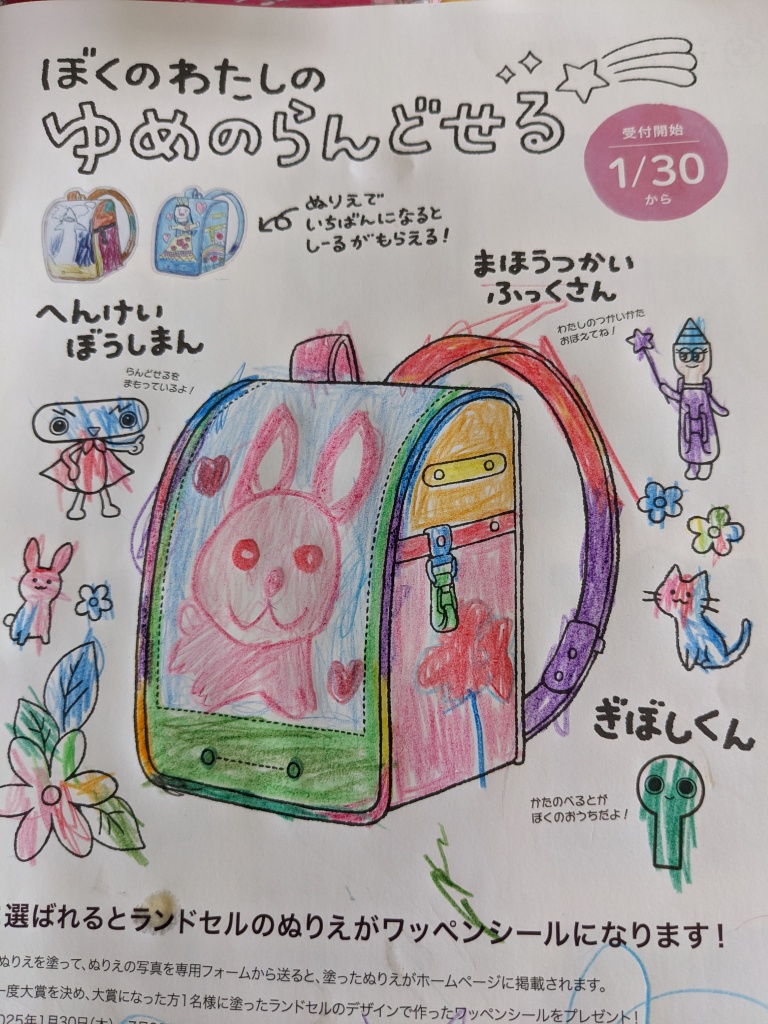 ぼくのわたしの
ゆめのらんどせる
受付開始
1/30
から
ぬりえで
いちばんになると
しーるがもらえる！
まほうつかい
ふっくさん
わたしのつかいかた
おぼえてね！
へんけい
ぼうしまん
らんどせるを
まもっているよ！
ぎぼしくん
かたのべるとが
ぼくのおうちだよ！
選ばれるとランドセルのぬりえがワッペンシールになります！
ぬりえを塗って、ぬりえの写真を専用フォームから送ると、塗ったぬりえがホームページに掲載されます。
一度大賞を決め、大賞になった方1名様に塗ったランドセルのデザインで作ったワッペンシールをプレゼント！
2025年1月30日(木)